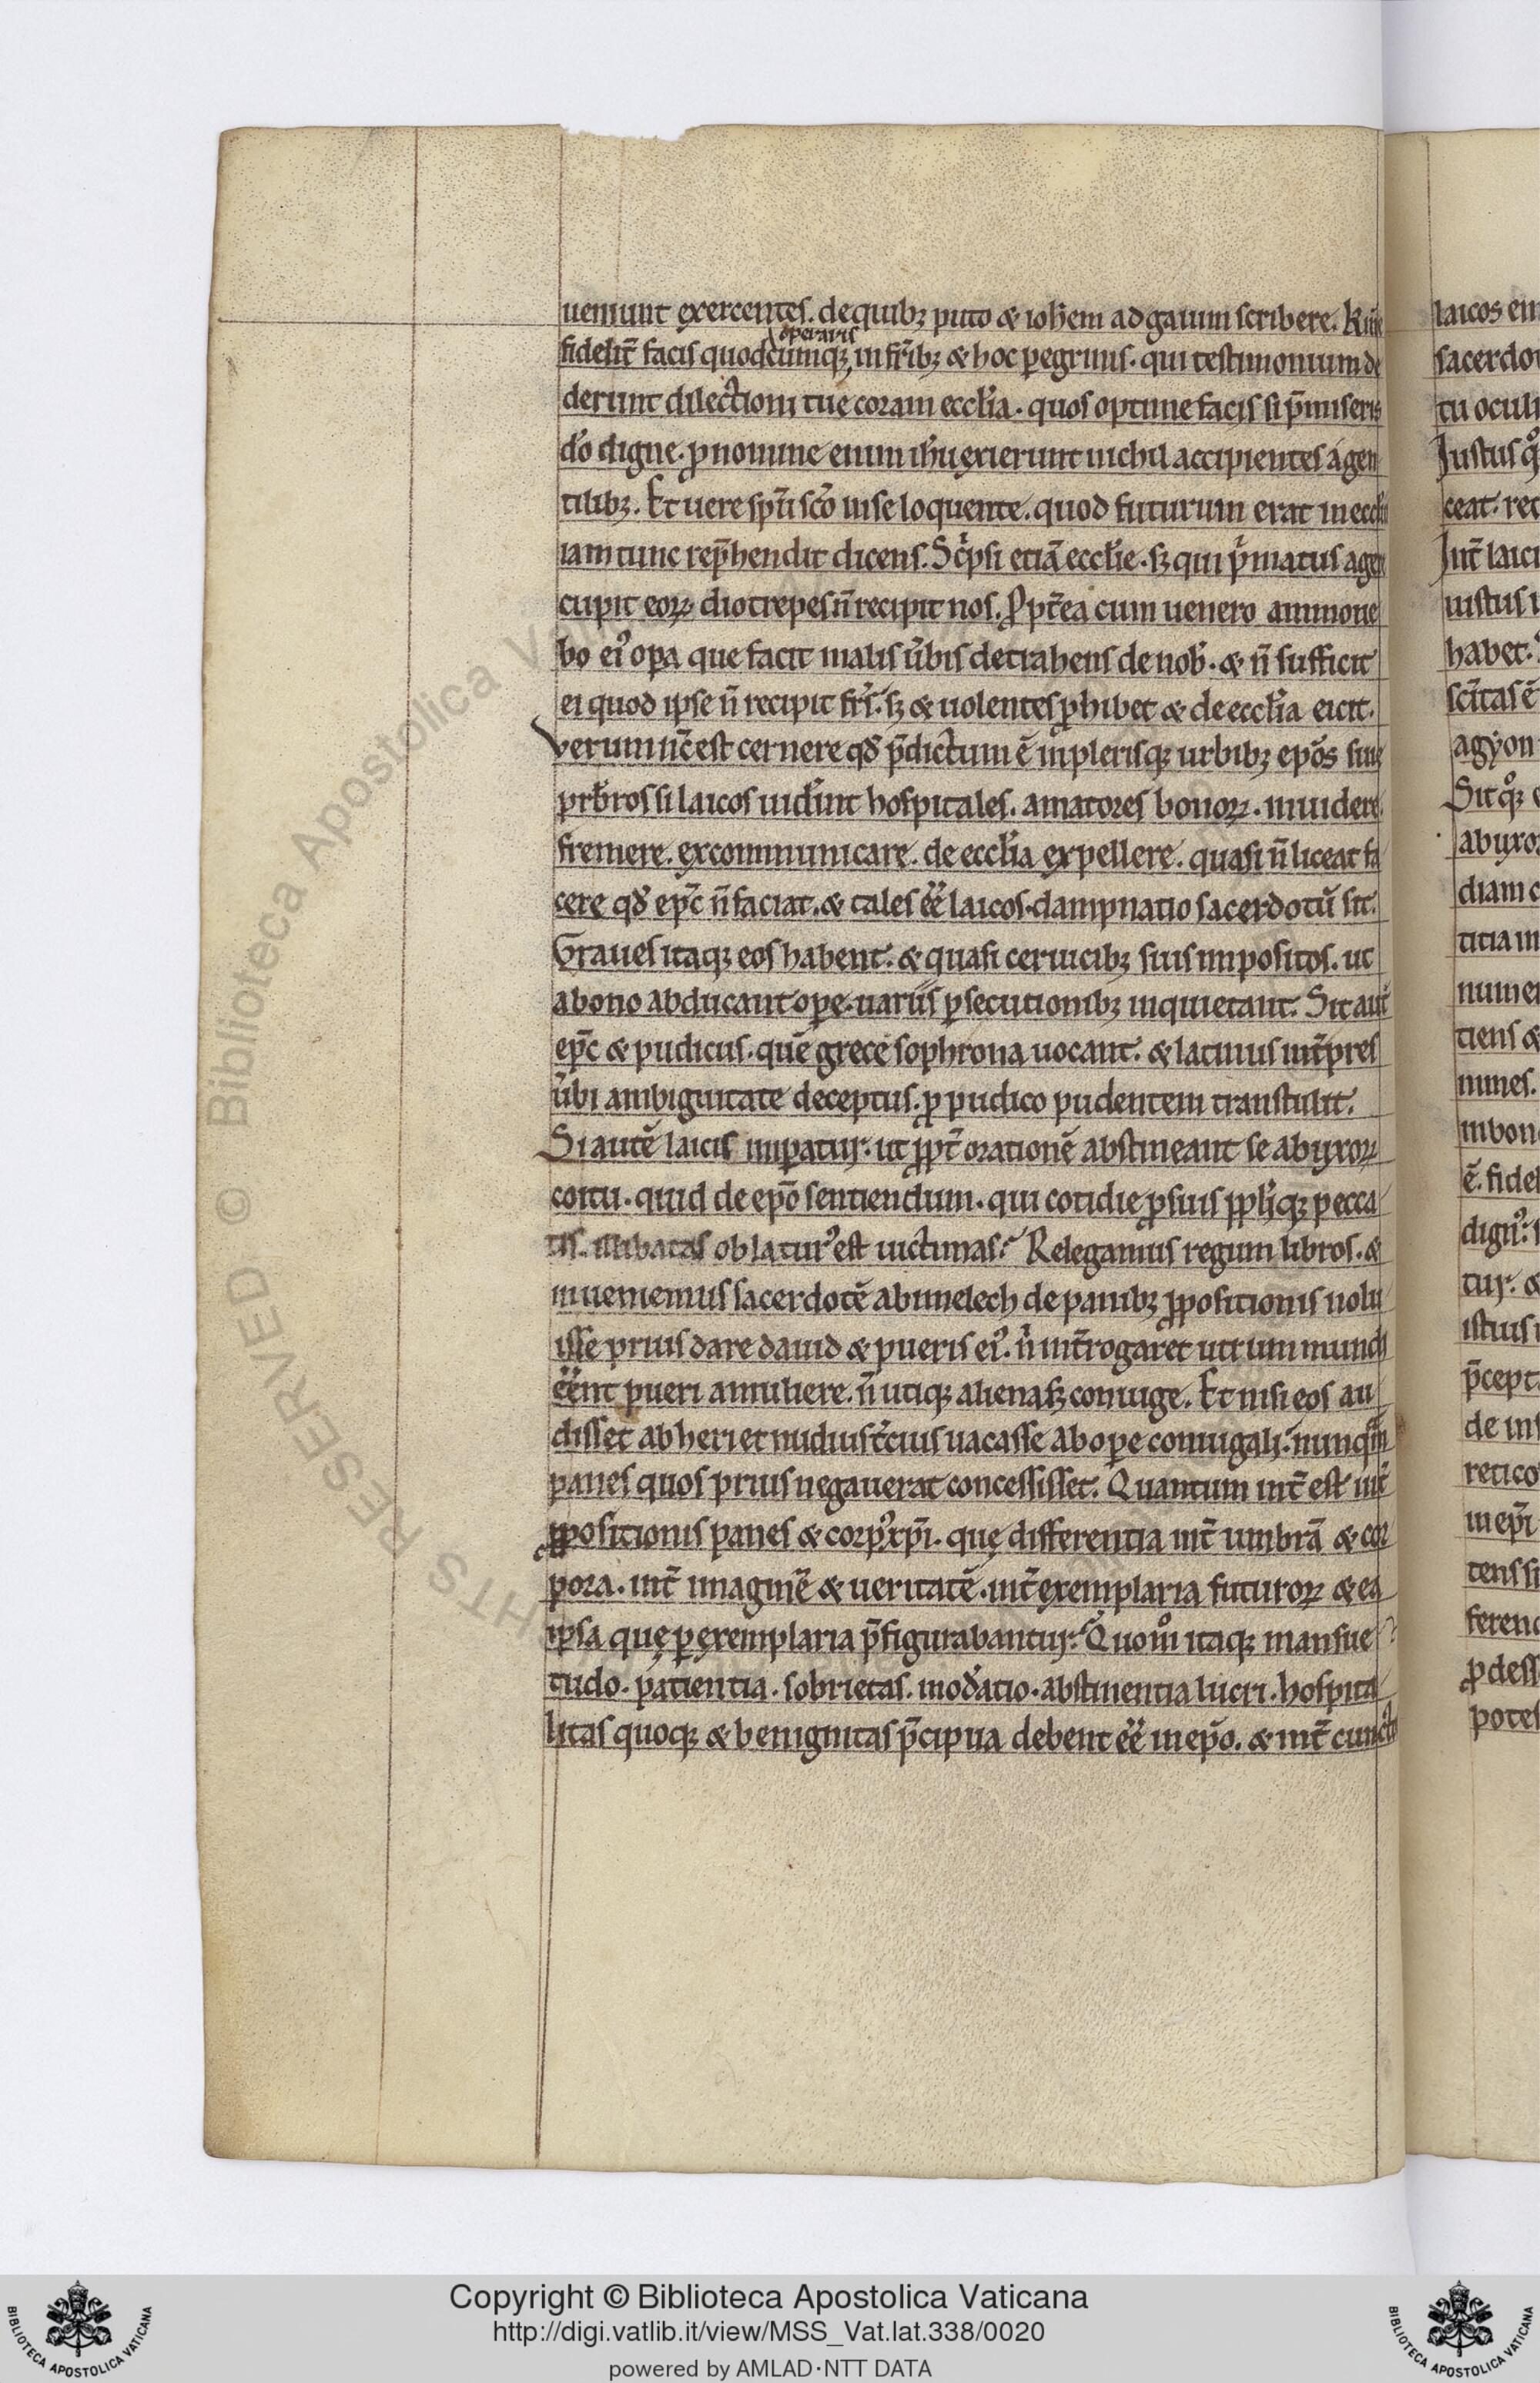 ueniunt exercentes. de quibꝫ puto & ioh̄em ad gaium scribere. k̄me
operaris
fidelit̄ facis quodcumqꝫ in fr̄ibꝫ & hoc ꝑegrinis. qui testimonium de
derunt dilectioni tue coram eccl̄ia. quos optime facis si p̄miseris
d̄o digne. ꝓ nomine enim ih̄u exierunt nichil accipientes a gen
tilibꝫ. Et uere sp̄u sc̄o in se loquente. quod futurum erat in eccl̄iis
iam tunc rep̄hendit dicens. Sc'psi etiā eccl̄ie. sꝫ qui p'matus agere
cupit eoꝝ diotrepes n̄ recipit nos. ꝓpt̄ea cum uenero ammone
bo ei᾽ oꝑa que facit malis ūbis detrahens de nob̄. & n̄ sufficit
ei quod ipse n̄ recipit fr̄s. sꝫ & uolentes ꝓhibet & de eccl̄ia eicit.
Verum nc̄ est cernere qd̄ p̄dictum ē in plerisqꝫ urbibꝫ ep̄os siue
prb̄ros si laicos uid̄int hospitales. amatores bonoꝝ. inuidere.
fremere. excommunicare. de eccl̄ia expellere. quasi n̄ liceat fa
cere qd̄ ep̄c n̄ faciat. & tales ēe laicos. dampnatio sacerdotū sit.
Graues itaqꝫ eos habent. & quasi ceruicibꝫ suis impositos. ut
a bono abducant oꝑe. uariis ꝑsecutionibꝫ inquietant. Sit aut̄
ep̄c & pudicus. quē grece sophrona uocant. & latinus int̄pres
ūbi ambiguitate deceptus. ꝓ pudico pudentem transtulit.
Si autē laicis inꝑatur. ut ꝓpt̄ orationē abstineant se ab uxoꝝ
coitu. quid de ep̄o sentiendum. qui cotidie ꝓ suis ppl'iqꝫ pecca
tis. illibatas oblatur᾽ est uictimas? Relegamus regum libros. &
inueniemus sacerdotē abimelech de panibꝫ ꝓpositionis nolu
isse prius dare dauid & pueris ei᾽. n' int̄rogaret utrum mundi
ēent pueri a muliere. n̄ utiqꝫ aliena sꝫ coniuge. Et nisi eos au
disset ab heri et nudiust̄cius uacasse ab oꝑe coniugali. nunqᵃm
panes quos prius negauerat concessisset. Quantum int̄ est int̄
ꝓpositionis panes & corp᾽ xp̄i. quę differentia int̄ umbrā & cor
pora. int̄ imaginē & ueritatē. int̄ exemplaria futuroꝝ & ea
ipsa quę ꝑ exemplaria p̄figurabantur? Quomº itaqꝫ mansue
tudo. patientia. sobrietas. mod̄atio. abstinentia lucri. hospita
litas quoqꝫ & benignitas p̄cipua debent ēe in ep̄o. & int̄ cunctos
laicos em
sacerdo
tu oculi
Iustus q᾽
ceat. rec
Int̄ laici
iustus
habet.
sc̄itas ē
agyon
Sit qᵒꝫ
ab uxor
diam
titia in
numer
tiens &
mines.
in bon
ē. fidel
dign᾽.
tur. &
istius
p̄cept
de ins
retico
in ep̄i
tens si
ferend
ꝓdess
potes
Copyright © Biblioteca Apostolica Vaticana
http://digi.vatlib.it/view/MSS_Vat.lat.338/0020
powered by AMLAD·NTT DATA
BIBLIOTECA APOSTOLICA VATICANA
BIBLIOTECA APOSTOLICA VATICANA